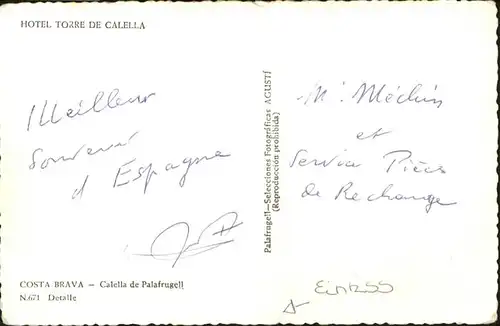 HOTEL TORRE DE CALELLA
Meilleur
Souvenir
d'Espagne
COSTA BRAVA – Calella de Palafrugell
N.671 Detalle
Palafrugell—Selecciones Fotográficas AGUSTÍ
(Reproducción prohibida)
Mr Méchin
et
Service Pièces
de Rechange